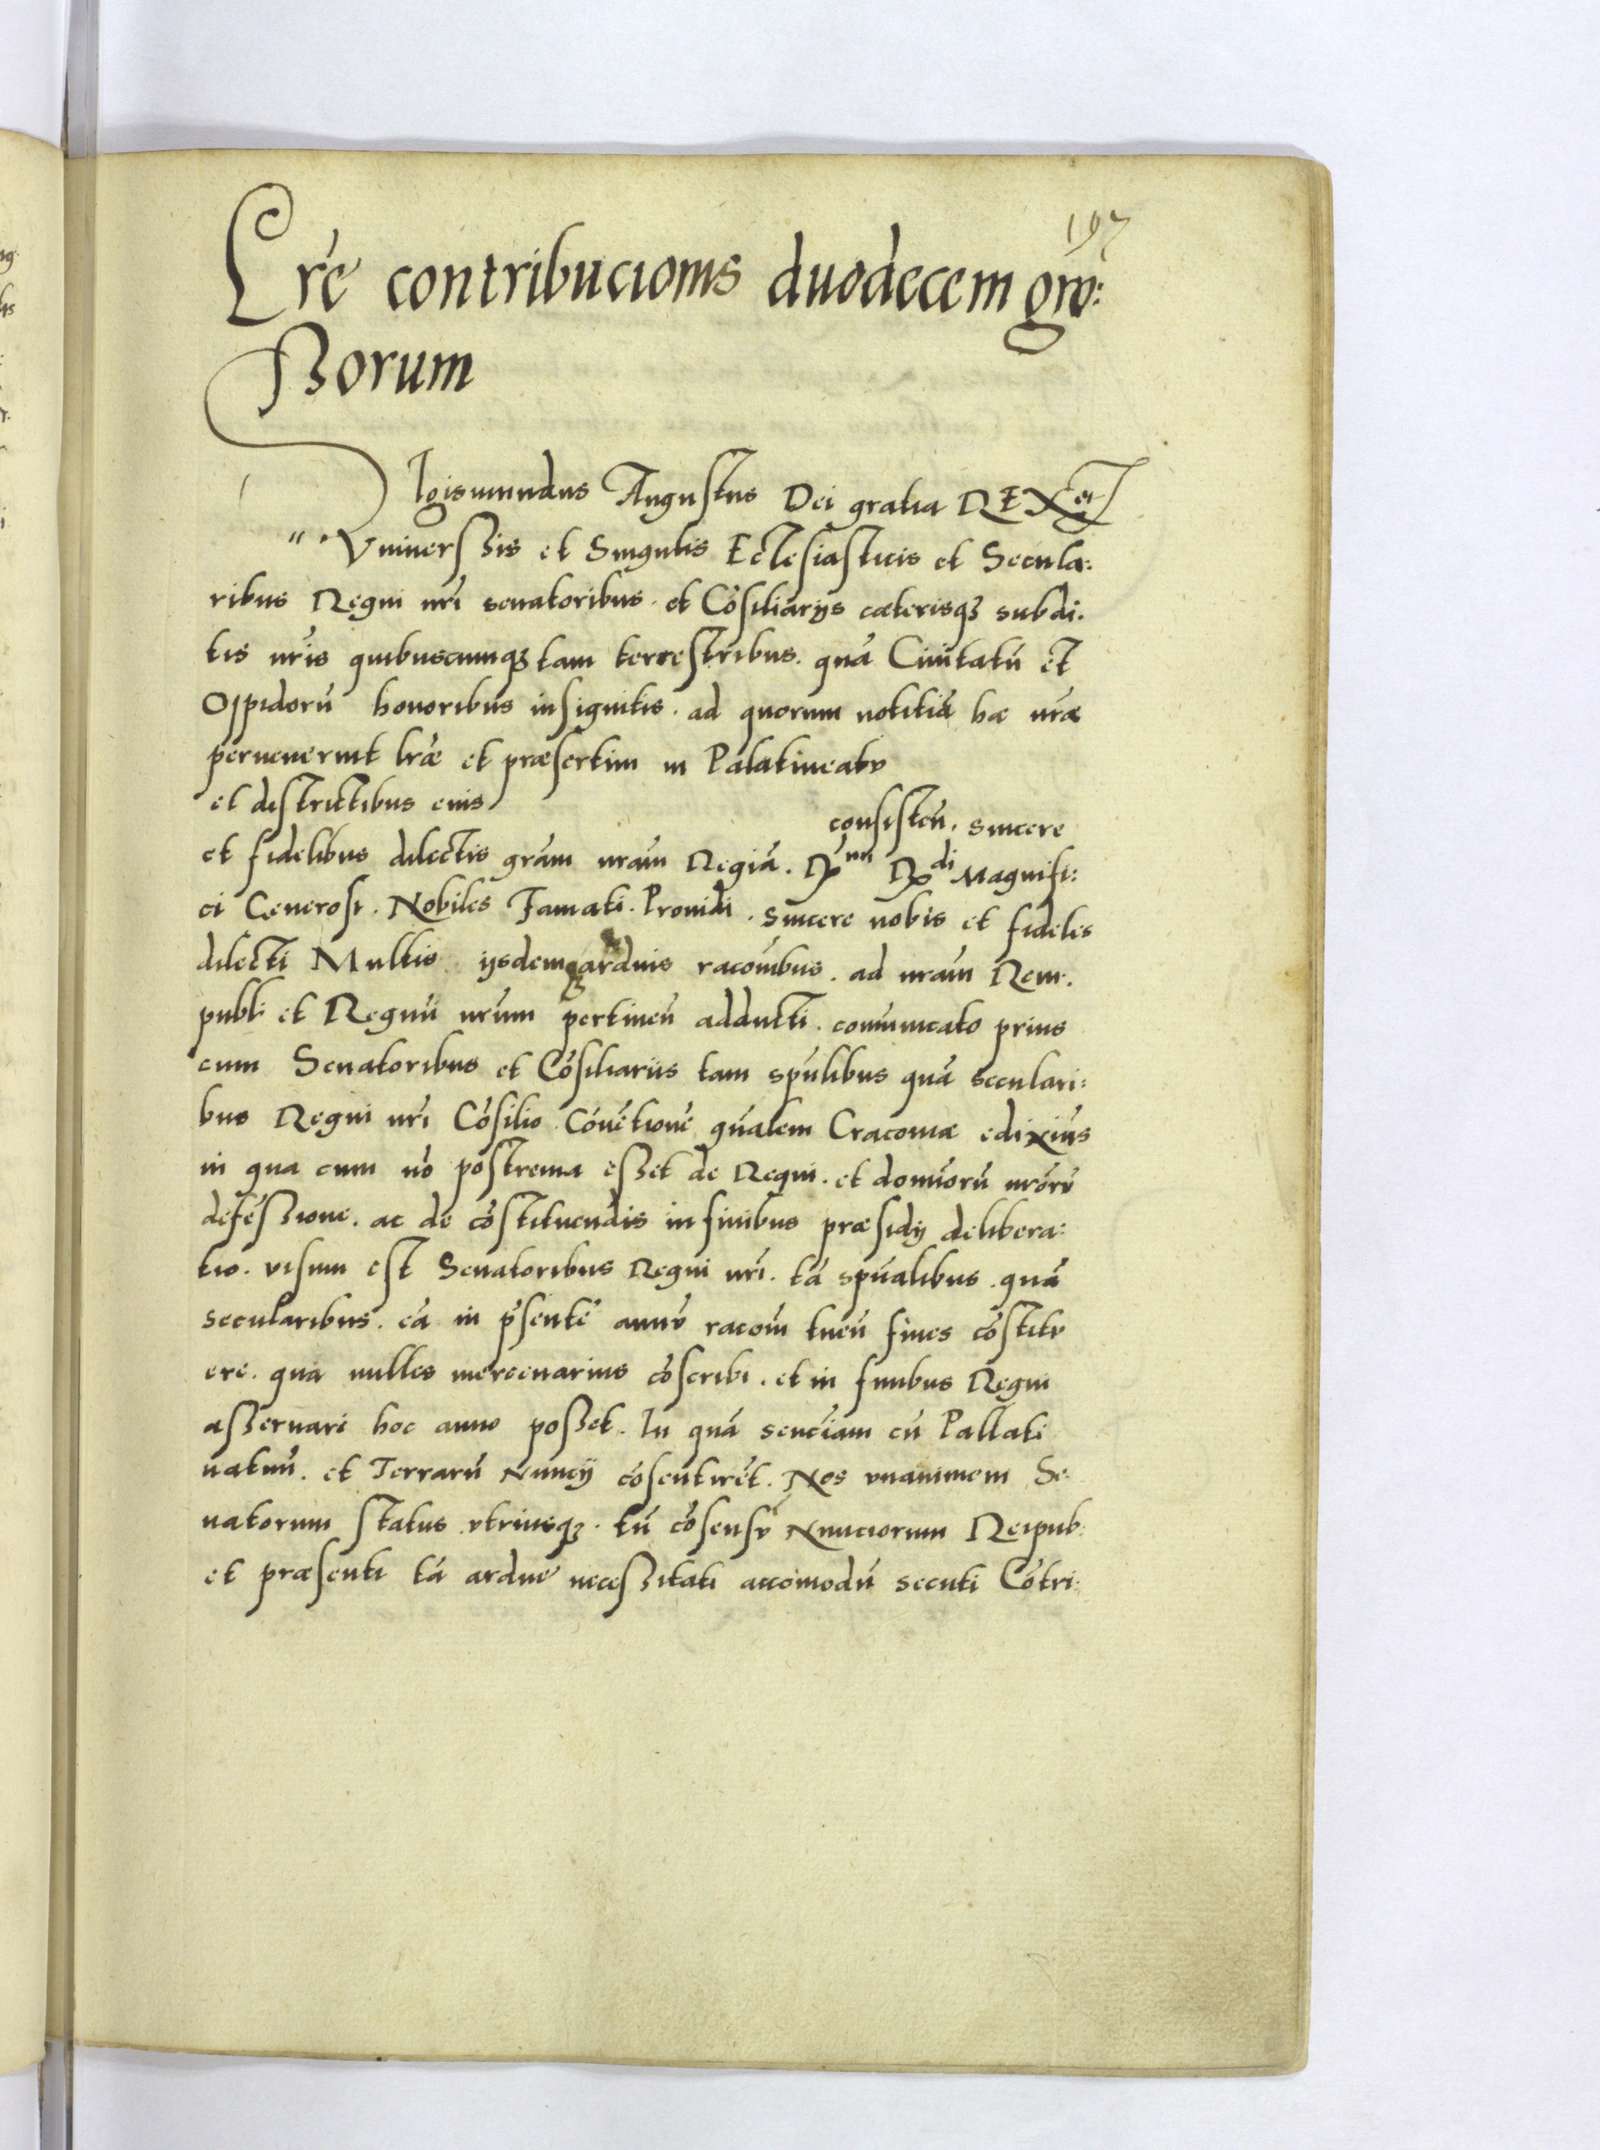 197
Lr̃e contribucionis duodecem gro:
ssorum
Sigismundus Augustus Dei gratia REX etc
Vniversis et Singulis Ecclesiasticis et Secula:
ribus Regni nr̃i senatoribus. et Cõsiliarijs cæterisqꝫ subdi.
tis nr̃is quibuscumqꝫ tam terrestribus. quã Ciuitatũ et
Oppidorũ honoribus insignitis. ad quorum notitiã hæ nr̃æ
peruenerint lr̃æ et præsertim in Palatineatu
et districtibus eius
consisteñ. sincere
et fidelibus dilectis gr̃am nr̃am Regiã. Rmi Rndi Magnifi:
ci Generosi. Nobiles Famati. Prouidi. sincere nobis et fideles
dilecti Multis ijsdemqꝫ arduis racõnibus. ad nr̃am Rem.
publ: et Regnũ nr̃um pertineñ adducti. cõmunicato prius
cum Senatoribus et Cõsiliariis tam sp̃ulibus quã seculari:
bus Regni nr̃i Cõsilio Cõuẽtionẽ qualem Cracouiæ edixim̃s
in qua cum nõ postrema esset de Regni. et domĩorũ nr̃orũ
defẽssione. ac de cõstituendis in finibus præsidij delibera:
tio. visum est Senatoribus Regni nr̃i. tã sp̃ualibus. quã
secularibus. eã in p̃sentẽ annũ racõm tueñ fines cõstitu
ere. qua milles mercenarius cõscribi. et in finibus Regni
asseruari hoc anno posset. In quã senc̃iam cũ Pallati
natuũ. et Terrarũ Nuncij cõsentirẽt. Nos vnanimem Se.
natorum status vtriusqꝫ. tũ cõsensũ Nunciorum Reipub:
et præsenti tã arduæ necessitati accõmodũ secuti Cõtri: